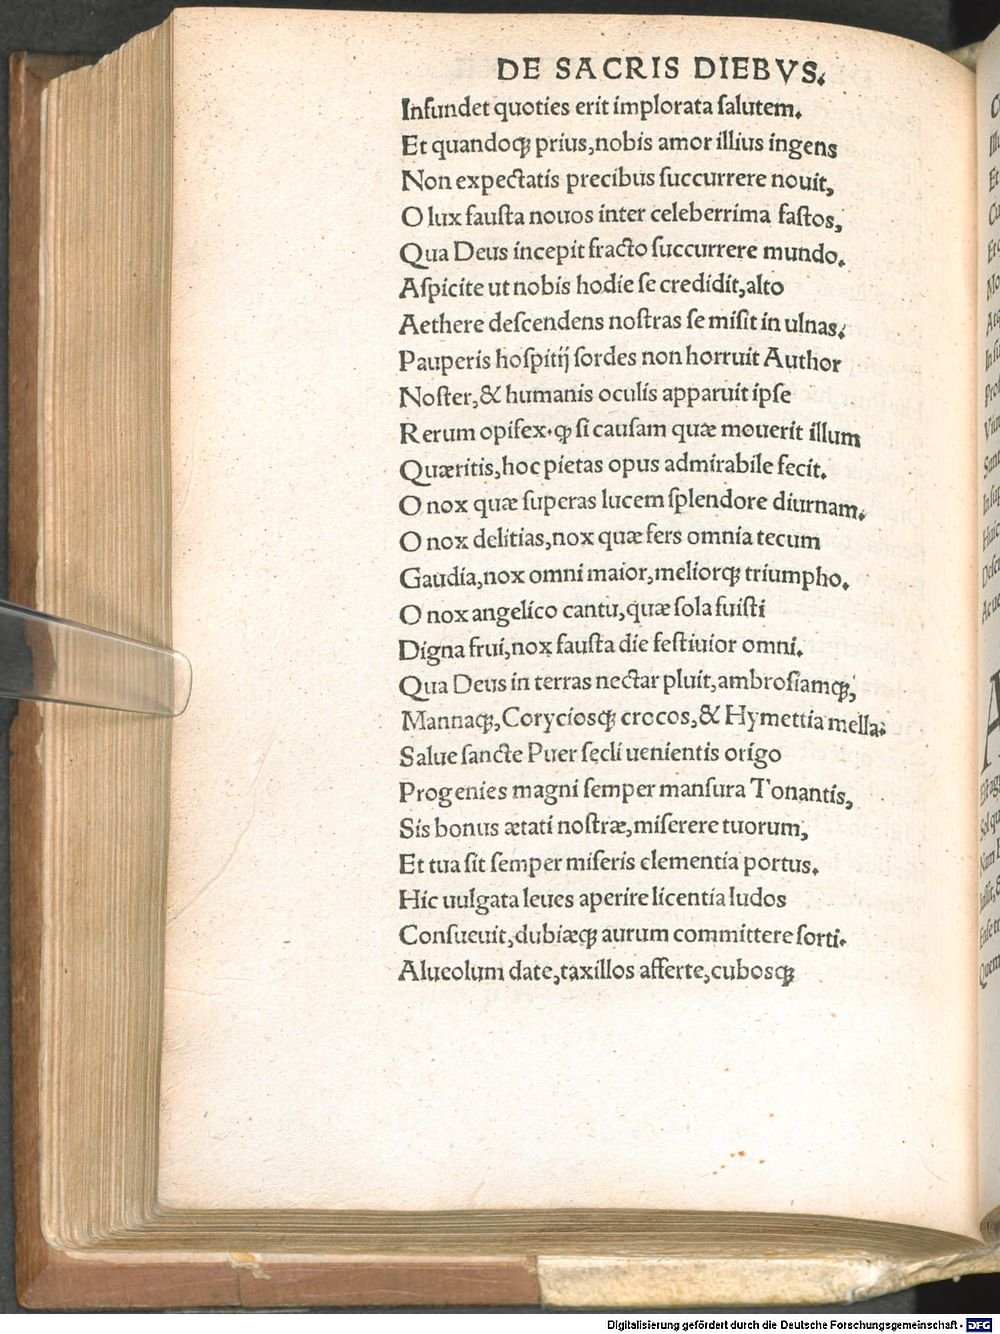 DE SACRIS DIEBVS.
Infundet quoties erit implorata ſalutem.
Et quandoqꝫ prius,nobis amor illius ingens
Non expectatis precibus ſuccurrere nouit,
O lux fauſta nouos inter celeberrima faſtos,
Qua Deus incepit fracto ſuccurrere mundo.
Aſpicite ut nobis hodie ſe credidit,alto
Aethere deſcendens noſtras ſe miſit in ulnas.
Pauperis hoſpitij ſordes non horruit Author
Noſter,& humanis oculis apparuit ipſe
Rerum opifex.ꝙ ſi cauſam quæ mouerit illum
Quæritis,hoc pietas opus admirabile fecit.
O nox quæ ſuperas lucem ſplendore diurnam.
O nox delitias,nox quæ fers omnia tecum
Gaudia,nox omni maior,meliorqꝫ triumpho.
O nox angelico cantu,quæ ſola fuiſti
Digna frui,nox fauſta die feſtiuior omni.
Qua Deus in terras nectar pluit,ambroſiamqꝫ,
Mannaqꝫ,Coryciosqꝫ crocos,& Hymettia mella.
Salue ſancte Puer ſecli uenientis origo
Progenies magni ſemper manſura Tonantis,
Sis bonus ætati noſtræ,miſerere tuorum,
Et tua ſit ſemper miſeris clementia portus.
Hic uulgata leues aperire licentia ludos
Conſueuit,dubiæqꝫ aurum committere ſorti.
Alueolum date,taxillos afferte,cubosqꝫ
Digitalisierung gefördert durch die Deutsche Forschungsgemeinschaft - DFG